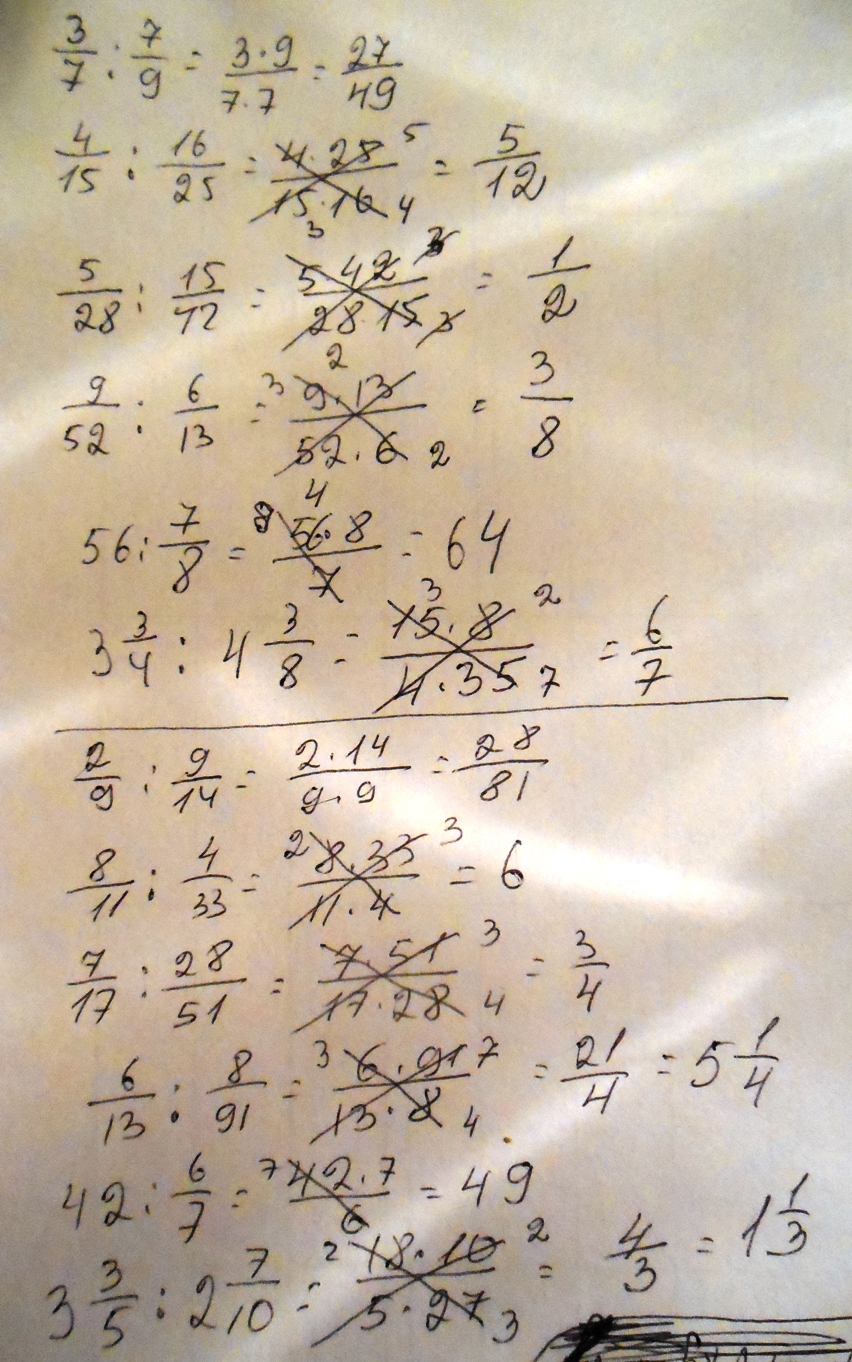 3/7 : 7/9 = 3·9/7·7 = 27/49
4/15 : 16/25 = 4·25/15·16 5 3 4 = 5/12
5/28 : 15/42 = 5·42/28·15 3 2 3 = 1/2
9/52 : 6/13 = 3 9·13/52·6 4 2 = 3/8
56 : 7/8 = 8 56·8/7 = 64
3 3/4 : 4 3/8 = 15·8/4·35 3 2 7 = 6/7
2/9 : 9/14 = 2·14/9·9 = 28/81
8/11 : 4/33 = 2 8·33/11·4 3 = 6
7/17 : 28/51 = 7·51/17·28 3 4 = 3/4
6/13 : 8/91 = 3 6·91/13·8 7 4 = 21/4 = 5 1/4
42 : 6/7 = 7 42·7/6 = 49
3 3/5 : 2 7/10 = 2 18·10/5·27 2 3 = 4/3 = 1 1/3